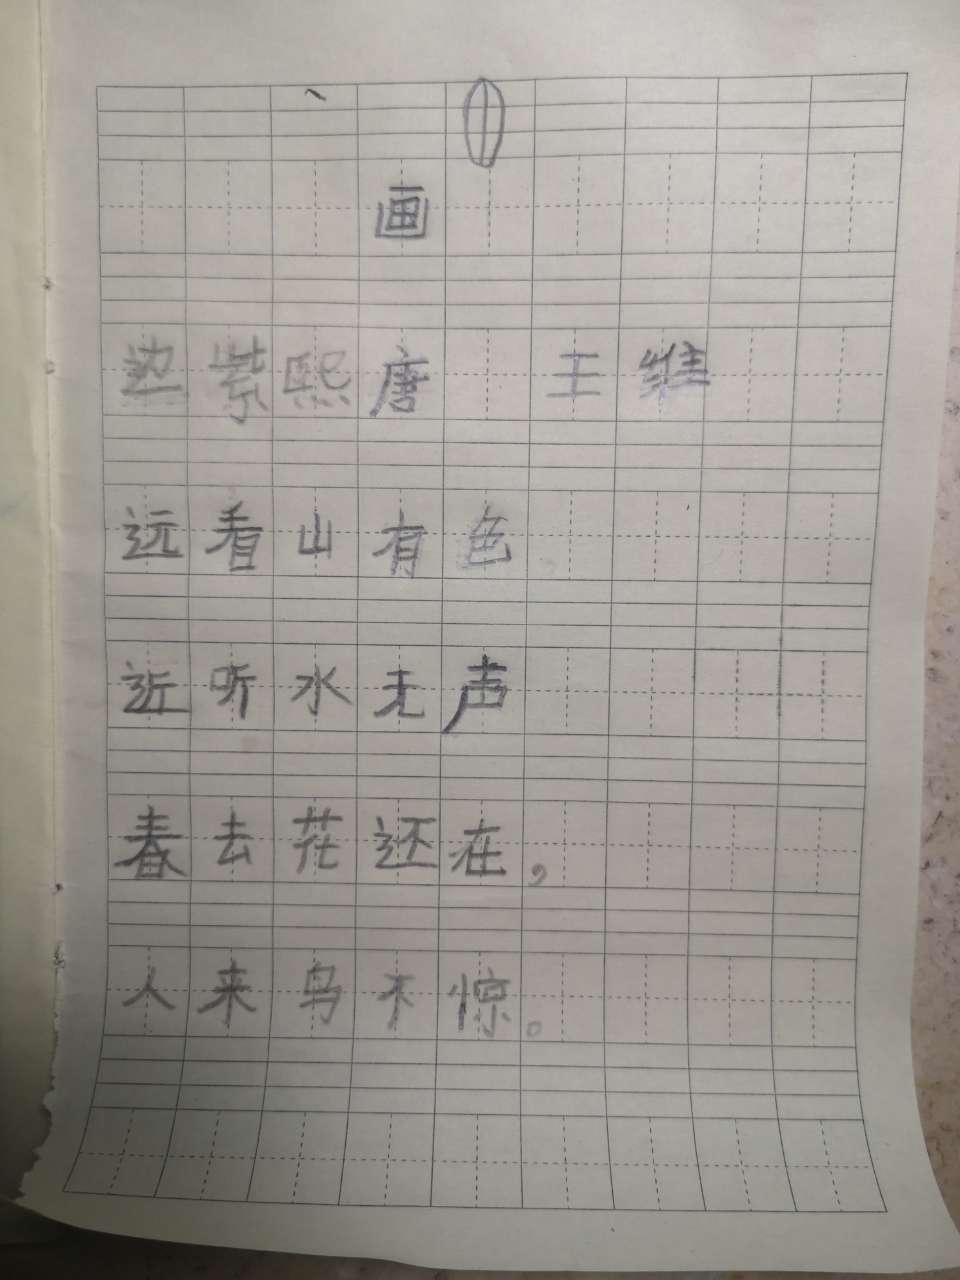 画
紫熙唐 王维
远看山有色，
近听水无声
春去花还在，
人来鸟不惊。